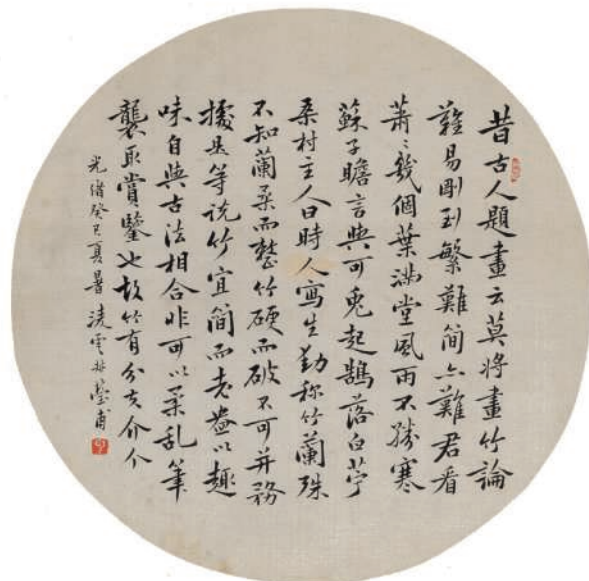 昔古人題畫云莫將畫竹論
難易剛到繁難簡亦難君看
蕭〻幾個葉滿堂風雨不勝寒
蘇子瞻言與可兎起鶻落白苧
桑村主人曰時人寫生動称竹蘭殊
不知蘭柔而整竹硬而破不可并務
據是等说竹宜简而老盎以趣
味自與古法相合非可以柔乱筆
襲取賞鑒也故竹有分去介个
光緒癸巳夏暑凌雲林瑩甫